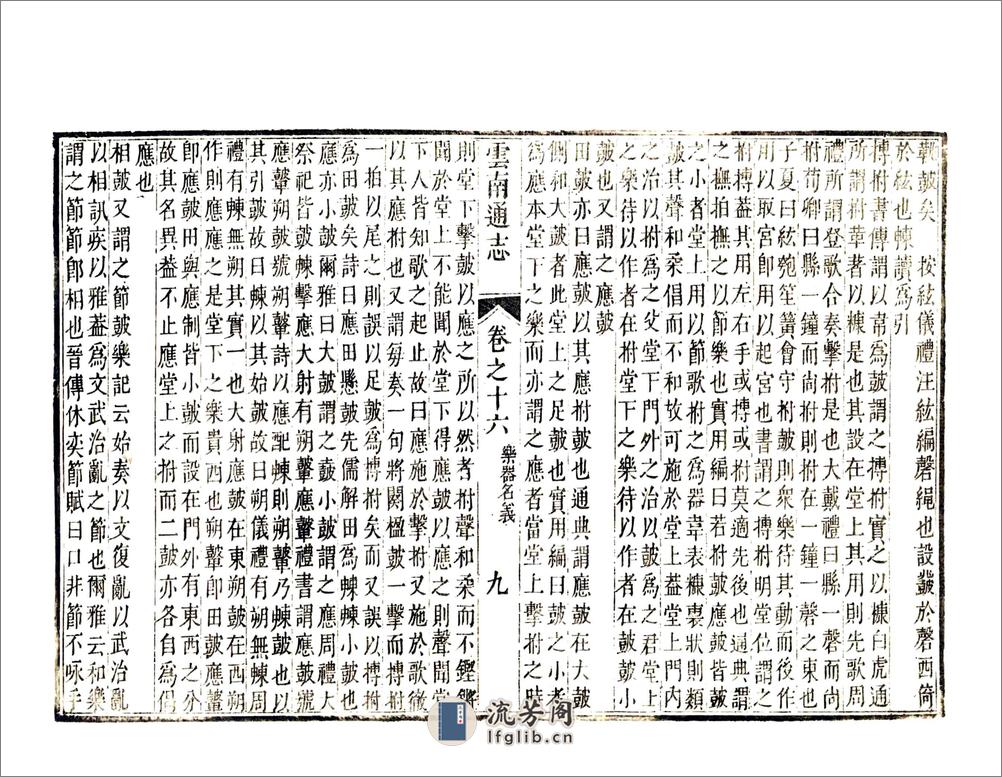 鼗鼓矣　按絃儀禮注絃編磬繩也設鼗於磬西倚
於絃也㯥讀爲引
搏拊書傳謂以韋爲鼓謂之搏拊實之以糠白虎通
所謂拊革著以糠是也其設在堂上其用則先歌周
禮所謂登歌合奏擊拊是也大戴禮曰縣一磬而尚
拊荀卿曰縣一鐘而尚拊則拊在一鐘一磬之東也
子夏曰絃匏笙簧會守拊鼓則衆樂待其動而後作
用以取宮卽用以起宮也書謂之搏拊明堂位謂之
拊搏葢其用左右手或搏或拊莫適先後也通典謂
之撫拍撫之以節樂也實用編曰若拊鼓應鼓皆鼓
之小者堂上用以節歌拊之爲器韋表糠裏狀則類
鼓其聲和柔倡而不和故可施於堂上葢堂上門內
之治以拊爲之父堂下門外之治以鼓爲之君堂上
之樂待以作者在拊堂下之樂待以作者在鼓鼓小
鼓也又謂之應鼓
田鼓又曰應鼓以其應拊鼓也通典謂應鼓在大鼓
側和大鼓者此堂上之足鼓也實用編曰鼓之小者
爲應本堂下之樂而亦謂之應者當堂上擊拊之時
雲南通志
卷之十六
樂器名義
九
則堂下擊鼓以應之所以然者拊聲和柔而不鏗鏘
聞於堂上不能聞於堂下得應鼓以應之則聲聞堂
下人皆知歌之起止故曰應施於擊拊又施於歌徹
以其應拊也又謂每奏一句將闋楹鼓一擊而搏拊
一拍以尾之則誤以足鼓爲搏拊矣而又誤以搏拊
爲田鼓矣詩曰應田縣鼓先儒解田爲㯥㯥小鼓也
應亦小鼓爾雅曰大鼓謂之鼖小鼓謂之應周禮大
祭祀鼓㯥擊應大射有朔鼙應鼙禮書謂應鼓號
應鼙朔鼓號朔鼙詩以應配㯥則朔鼙乃㯥鼓也以
其引鼓故曰㯥以其始鼓故曰朔儀禮有朔無㯥周
禮有㯥無朔其實一也大射應鼓在東朔鼓在西朔
作則應應之是堂下之樂貴西也朔鼙卽田鼓應鼙
卽應鼓田與應制皆小鼓而設在門外有東西之分
故其名異葢不止應堂上之拊而二鼓亦各自爲倡
應也
相鼓又謂之節鼓樂記云始奏以文復亂以武治亂
以相訊疾以雅葢爲文武治亂之節也爾雅云和樂
謂之節節卽相也晉傅休奕節賦曰口非節不咏手
流芳阁
lfglib.cn